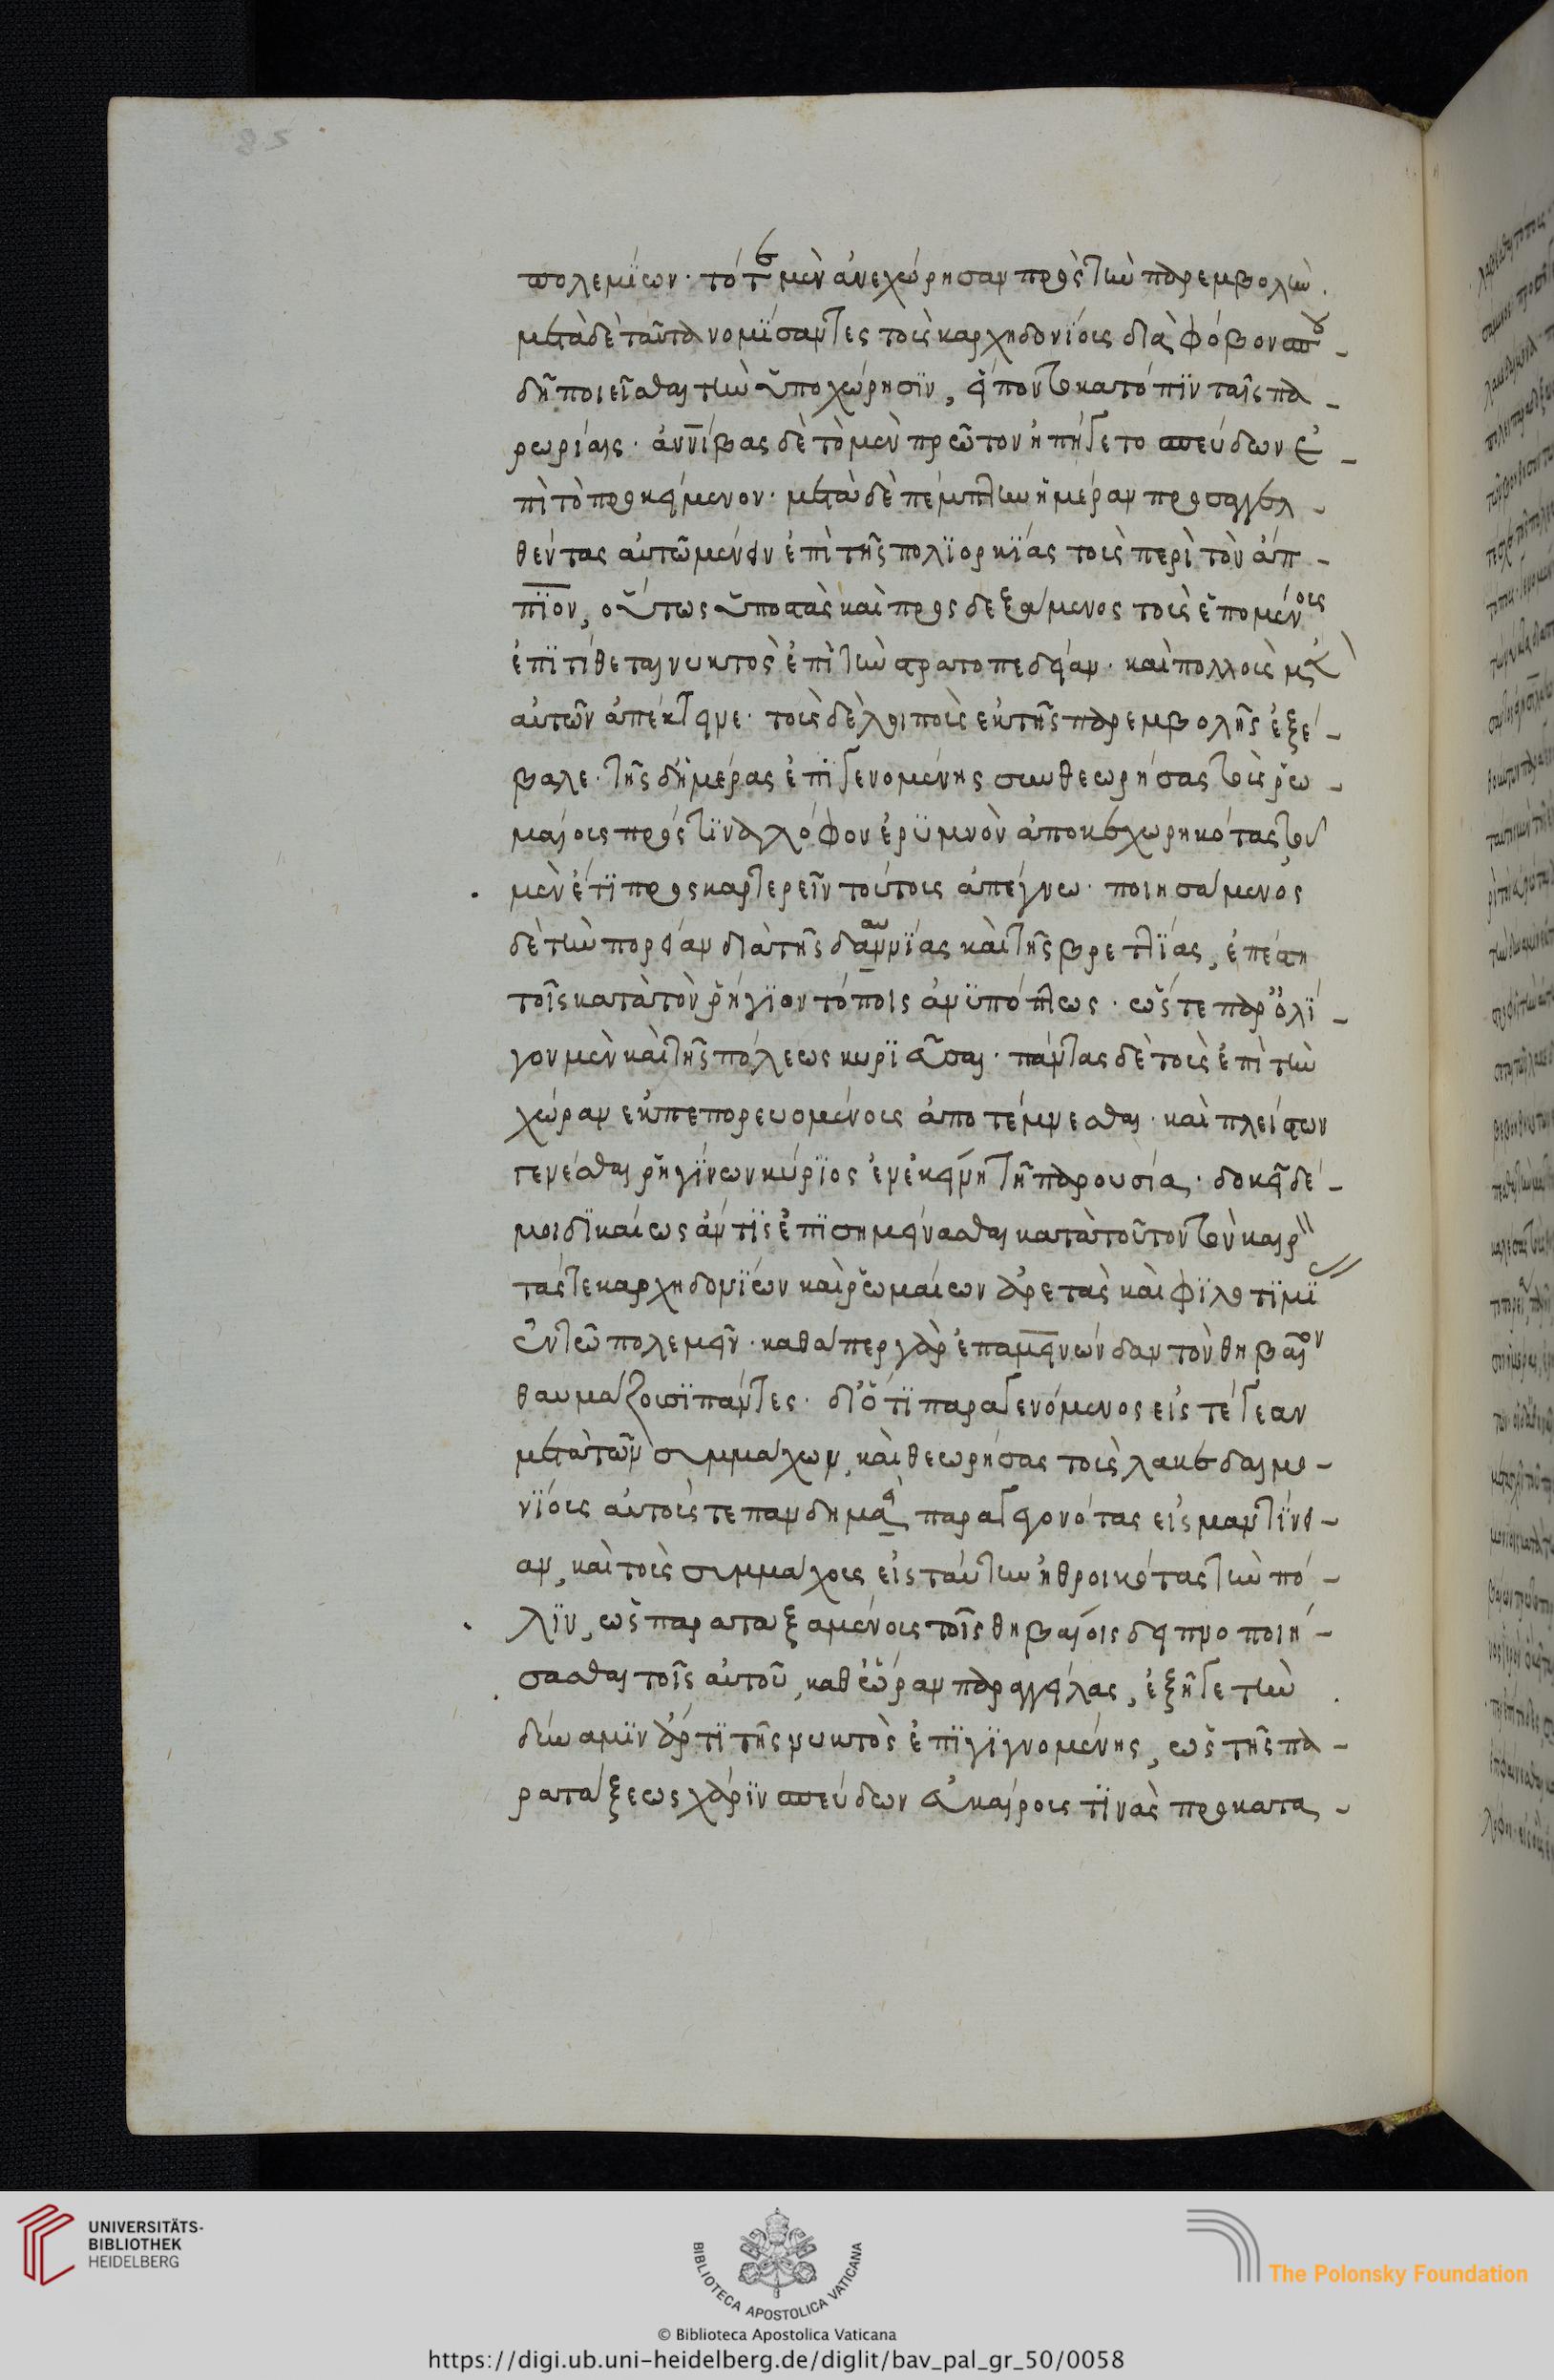 85
πολεμίων· τότε μὲν ἀνεχώρησαν πρὸς τὴν παρεμβολήν.
μετὰ δὲ ταῦτα νομίσαντες τοὺς καρχηδονίους διὰ φόβον σπου-
δῇ ποιεῖσθαι τὴν ὑποχώρησιν, εἵποντο κατόπιν ταῖς πα-
ρωρίαις· ἀννίβας δὲ τὸ μὲν πρῶτον ἠπήγετο σπεύδων ἐ-
πὶ τὸ προκείμενον· μετὰ δὲ πέμπτην ἡμέραν προσαγγελ-
θέντας αὐτῷ μένειν ἐπὶ τῆς πολιορκίας τοὺς περὶ τὸν ἄπ-
πιον, οὕτως ὑποστὰς καὶ προσδεξάμενος τοὺς ἑπομένους
ἐπιτίθεται νυκτὸς ἐπὶ τὴν στρατοπεδείαν· καὶ πολλοὺς μὲν
αὐτῶν ἀπέκτεινε· τοὺς δὲ λοιποὺς ἐκ τῆς παρεμβολῆς ἐξέ-
βαλε· τῆς δ' ἡμέρας ἐπιγενομένης συνθεωρήσας τοὺς ῥω-
μαίους πρός τινα λόφον ἐρυμνὸν ἀποκεχωρηκότας τοῦ
μὲν ἔτι προσκαρτερεῖν τούτοις ἀπέγνω· ποιησάμενος
δὲ τὴν πορείαν διὰ τῆς δαυνίας καὶ τῆς βρεττίας, ἐπέστη
τοῖς κατὰ τὸν ῥήγιον τόποις ἀνυπόπτως· ὥστε παρ' ὀλί-
γον μὲν καὶ τῆς πόλεως κυριεῦσαι· πάντας δὲ τοὺς ἐπὶ τὴν
χώραν ἐκπεπορευομένους ἀποτέμνεσθαι· καὶ πλείστων
γενέσθαι ῥηγίνων κύριος ἐν ἐκείνῃ τῇ παρουσίᾳ· δοκεῖ δέ-
μοι δικαίως ἄν τις ἐπισημείνασθαι κατὰ τοῦτον τὸν καιρ
τάς τε καρχηδονίων καὶ ῥωμαίων ἀρετὰς καὶ φιλοτιμί
ἐν τῷ πολεμεῖν· καθάπερ γὰρ ἐπαμεινώνδαν τὸν θηβαῖον
θαυμάζουσι πάντες· διότι παραγενόμενος εἰς τέγεαν
μετὰ τῶν συμμάχων, καὶ θεωρήσας τοὺς λακεδαιμο-
νίους αὐτούς τε πανδημεὶ παραγεγονότας εἰς μαντίνει-
αν, καὶ τοὺς συμμάχους εἰς ταύτην ἠθροικότας τὴν πό-
λιν, ὡς παραταξαμένους τοῖς θηβαίοις δειπνοποιή-
σασθαι τοῖς αὐτοῦ, καθ' ὥραν παραγγείλας, ἐξῆγε τὴν
δύναμιν ἄρτι τῆς νυκτὸς ἐπιγιγνομένης, ὡς τῆς πα-
ρατάξεως χάριν σπεύδων εὐκαίρους τινὰς προκατα-
UNIVERSITÄTS-
BIBLIOTHEK
HEIDELBERG
BIBLIOTECA APOSTOLICA VATICANA
The Polonsky Foundation
© Biblioteca Apostolica Vaticana
https://digi.ub.uni-heidelberg.de/diglit/bav_pal_gr_50/0058